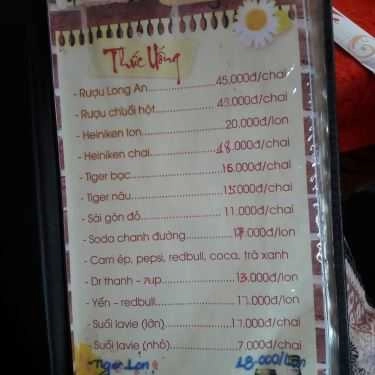 Thức Uống
- Rượu Long An..................45.000đ/chai
- Rượu chuối hột................45.000đ/chai
- Heiniken lon....................20.000đ/lon
- Heiniken chai.................18.000đ/chai
- Tiger bạc.......................16.000đ/chai
- Tiger nâu.......................15.000đ/chai
- Sài gòn đỏ.....................11.000đ/chai
- Soda chanh đường...........17.000đ/lon
- Cam ép, pepsi, redbull, coca, trà xanh
- Dr thanh – 7up................13.000đ/lon
- Yến – redbull..................17.000đ/lon
- Suối lavie (lớn)...............17.000đ/chai
- Suối lavie (nhỏ)................7.000đ/chai
- Tiger Lon 18.000/Lon